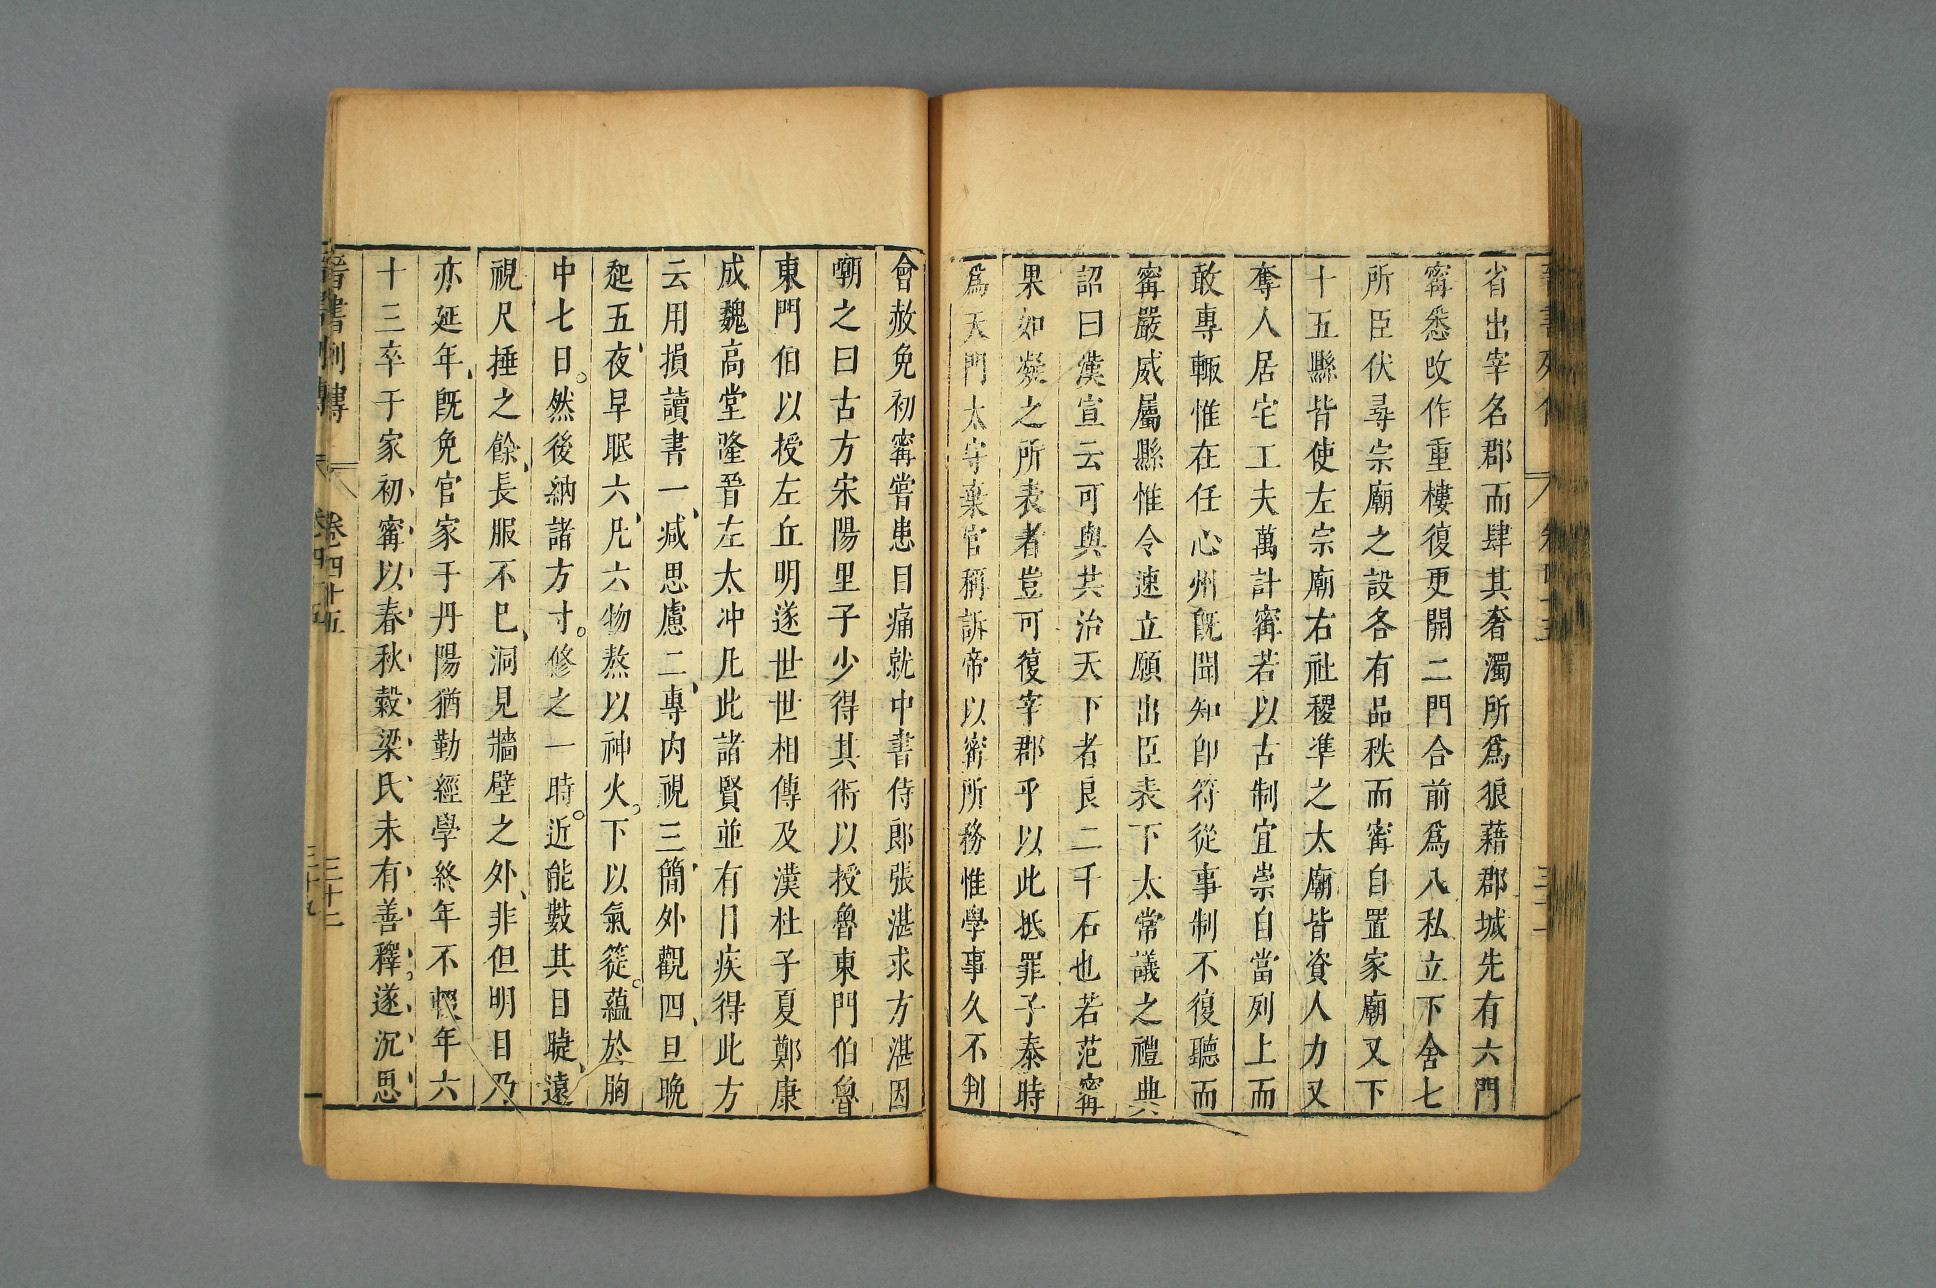 省出宰名郡而肆其奢濁所爲狼藉郡城先有六門
甯悉改作重樓復更開二門合前爲八私立下舍七
所臣伏尋宗廟之設各有品秩而甯自置家廟又下
十五縣皆使左宗廟右社稷準之太廟皆資人力又
奪人居宅工夫萬計甯若以古制宜崇自當列上而
敢專輒惟在任心州旣聞知卽符從事制不復聽而
甯嚴威屬縣惟令速立願出臣表下太常議之禮典
詔曰漢宣云可與共治天下者良二千石也若范甯
果如凝之所表者豈可復宰郡乎以此抵罪子泰時
爲天門太守棄官稱訴帝以甯所務惟學事久不判
會赦免初甯嘗患目痛就中書侍郎張湛求方湛因
嘲之曰古方宋陽里子少得其術以授魯東門伯魯
東門伯以授左丘明遂世世相傳及漢杜子夏鄭康
成魏高堂隆晉左太冲凡此諸賢並有目疾得此方
云用損讀書一、減思慮二、專内視三、簡外觀四、旦晚
起五、夜早眠六、凡六物熬以神火。下以氣簁。蘊於胸
中七日。然後納諸方寸。修之一時。近能數其目睫、遠
視尺捶之餘、長服不已、洞見牆壁之外、非但明目乃
亦延年、旣免官家于丹陽猶勤經學終年不輟年六
十三卒于家初甯以春秋穀梁氏未有善釋。遂沉思
晉書列傳 卷四十五 三十二